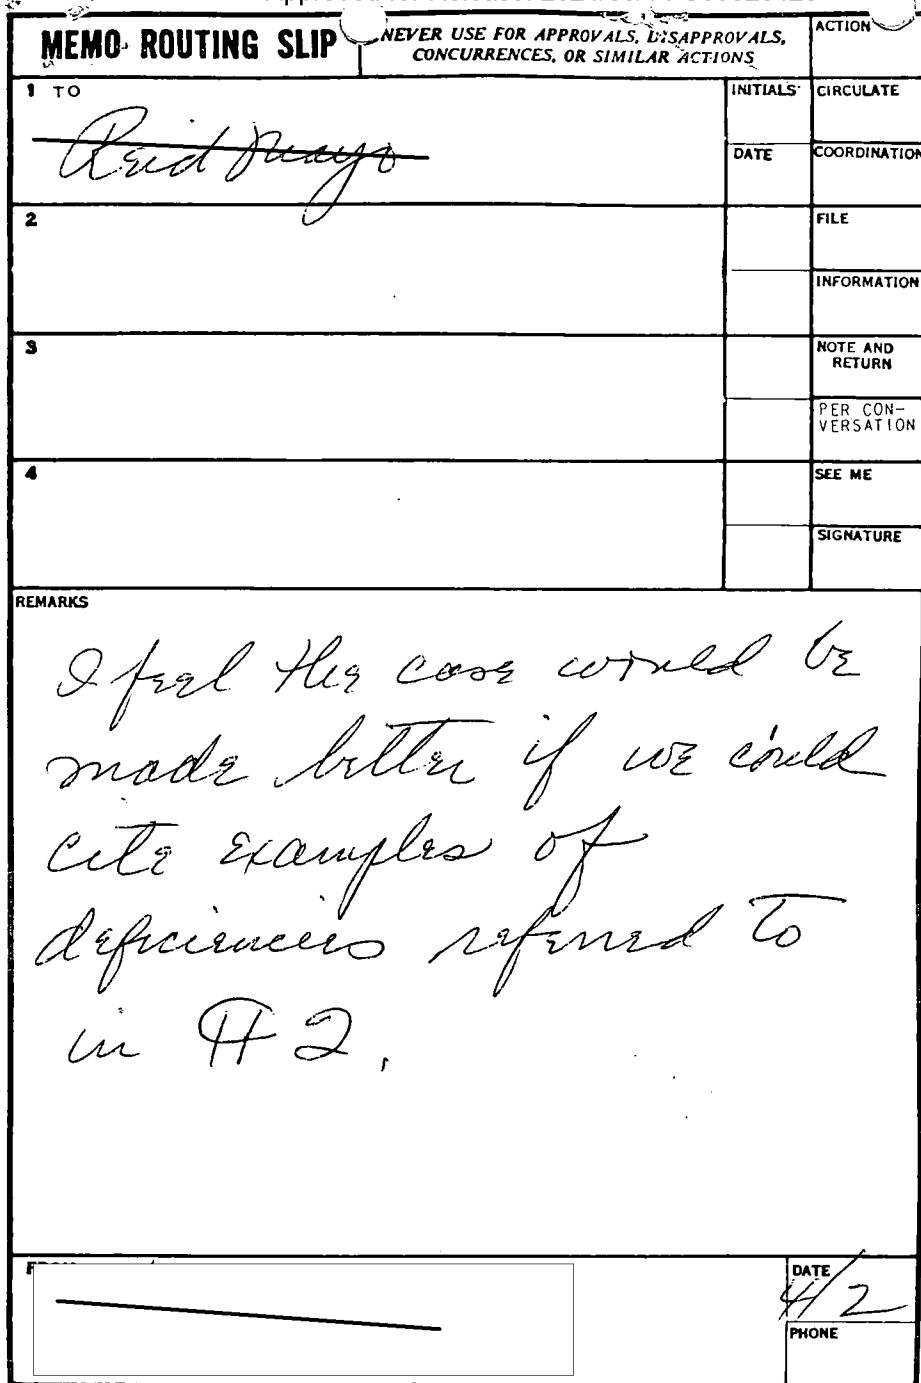 MEMO ROUTING SLIP
NEVER USE FOR APPROVALS, DISAPPROVALS,
CONCURRENCES, OR SIMILAR ACTIONS
ACTION
1 TO
Reid Mayo
INITIALS
CIRCULATE
DATE
COORDINATION
2
FILE
INFORMATION
3
NOTE AND
RETURN
PER CON-
VERSATION
4
SEE ME
SIGNATURE
REMARKS
I feel the case would be
made better if we could
cite examples of
deficiencies referred to
in ¶ 2.
DATE
4/2
PHONE